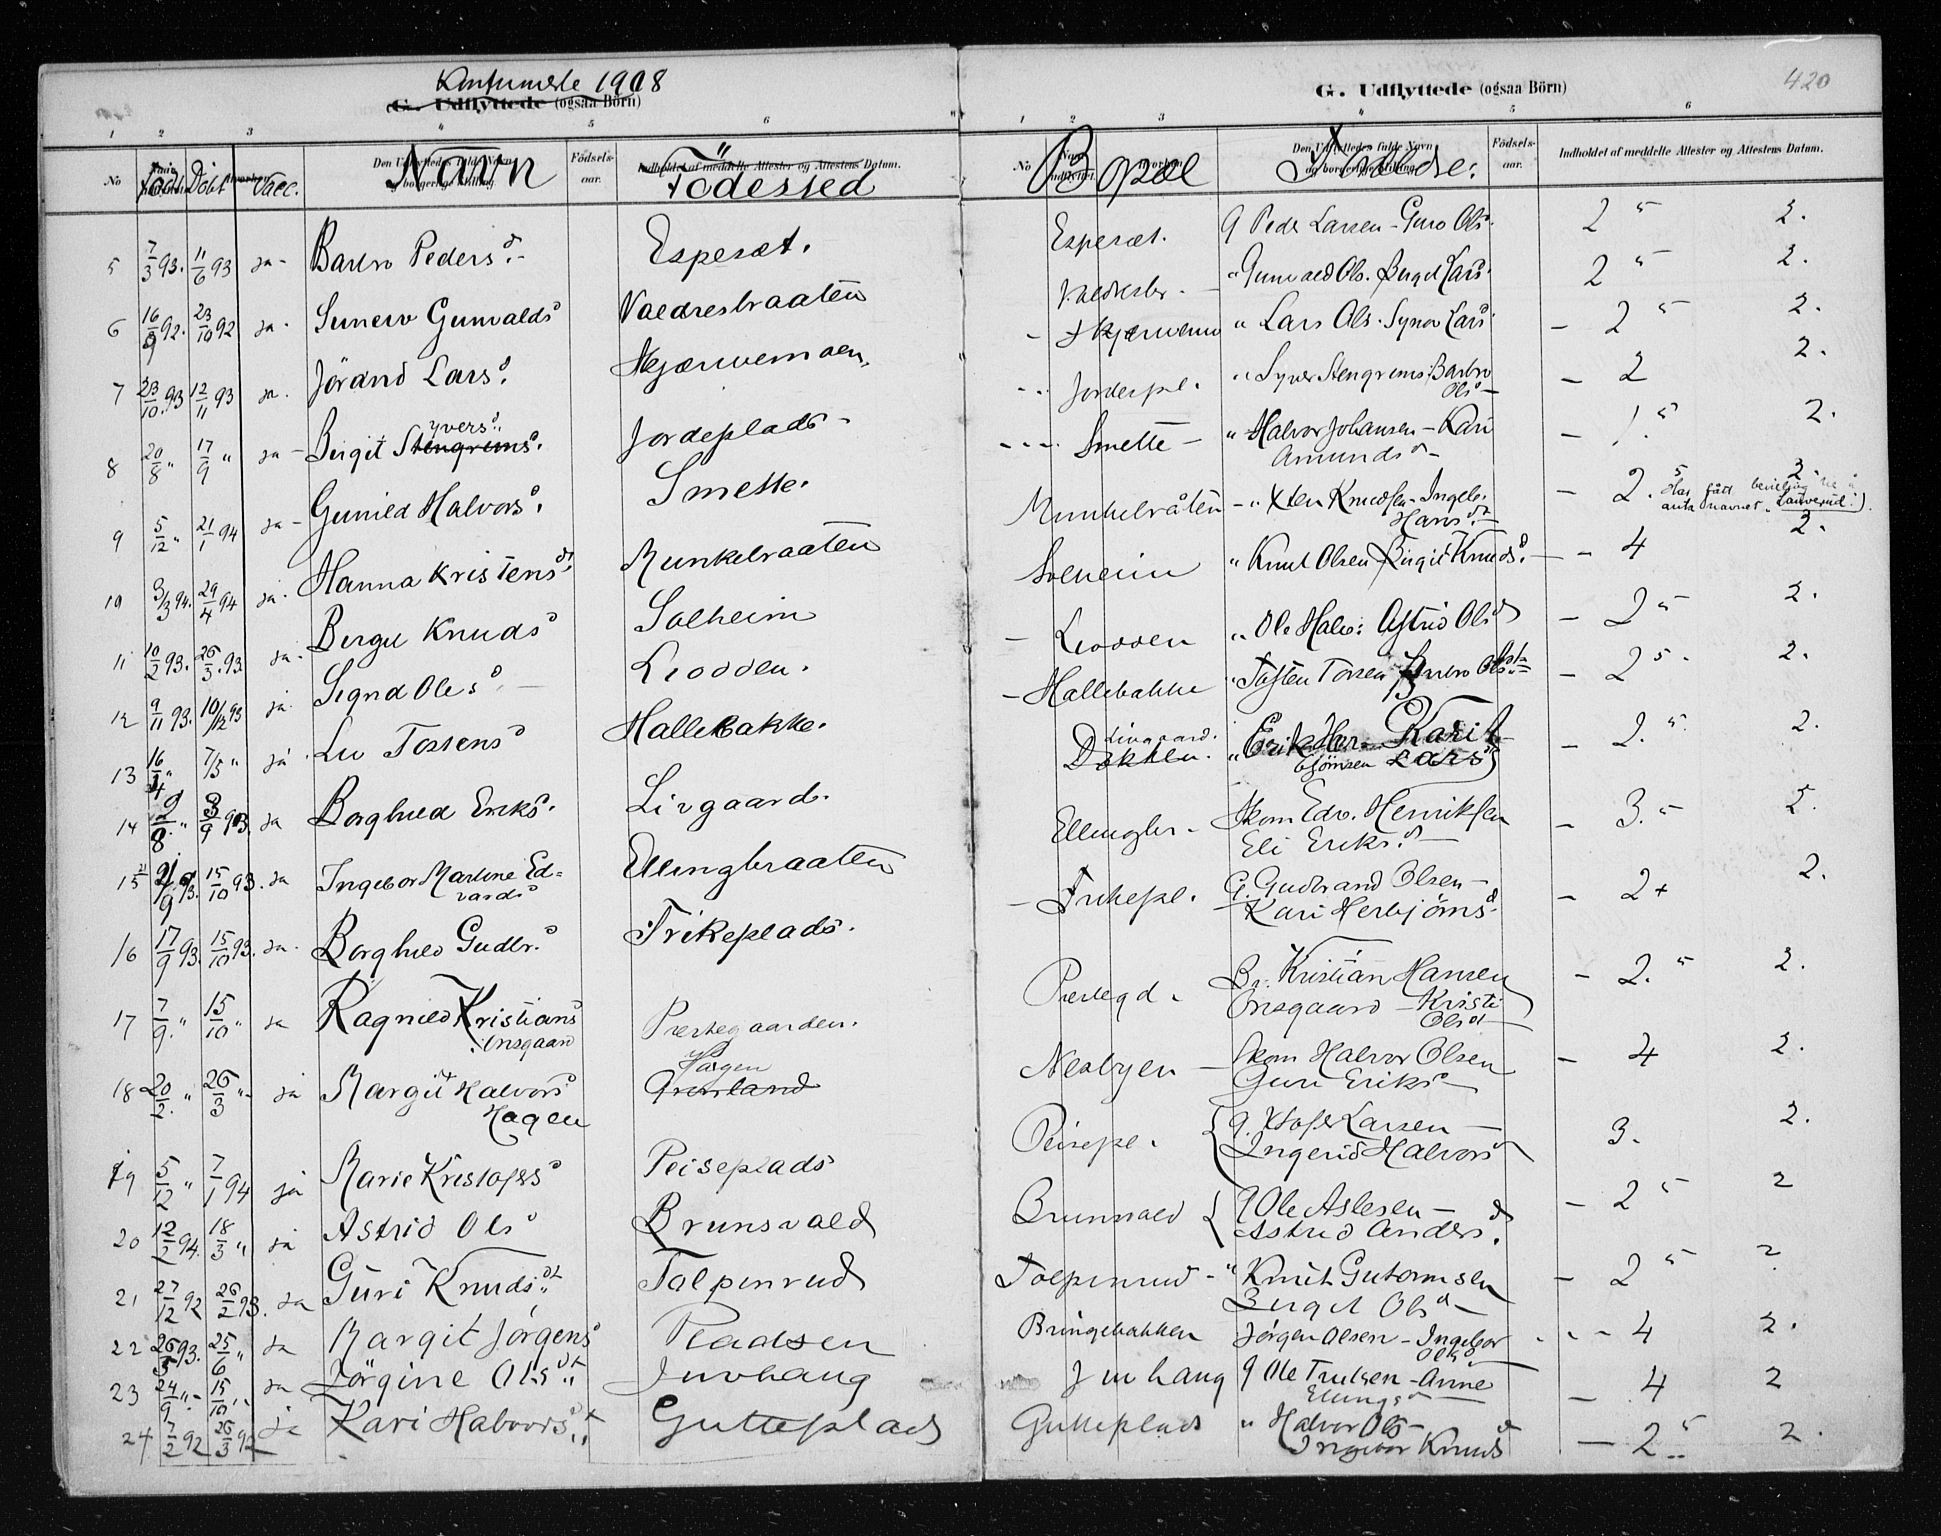 Konfirmerte 1908
G. Udflyttede (ogsaa Börn)
1 2 3 4 5 6
No Född Döbt Vacc. Navn Födsels-aar. Födested
5 7/3 93. 11/6 93 ja - Barbro Peders d. - Esperset.
6 16/9 92. 23/10 92 ja - Gunvalds d Valdresbraaten
7 23/10. 93 12/11 93 ja. Jörand Lars d. Skjærvemoen.
yvers d.
8 20/8 " 17/9 " ja - Birgit Stengrims d. Jordeplads -
9 5/12 " 21/1 94 ja - Gunild Halvors d. Smette.
10 3/3 94. 29/4 94 ja. Hanna Kristens dt. Munkelraaten
11 10/2 93. 26/3. 93. ja. Bergit Knuds d Solheim
12 9/11 93. 10/12 93 ja. Signd Oles d. - Liodden.
13 16/4 " 7/5 " ja. Liv Tostens d Hallebakke.
14 2/8. " 3/9 93. ja Borghild Eriks d. Livgaard.
15 21/9 93. 15/10 93. ja Ingebor Martine Ed=
vards d Ellingbraaten
16 17/9 93. 15/10 93. ja. Borghild Gudbr. d Trikeplads.
17 7/9. " 15/10 " ja Ragnild Kristians d
Onsgaard Prestegaarden.
Hagen
18 20/2. " 26/3 " ja Margit Halvors d Grönland
Hagen
19 5/12 " 7/1 94 ja Marie Kristofers d Peiseplads
20 12/2 94. 18/3 " ja Astrid Ols d Brunsvald
21 27/12 92 26/2 93. ja Guri Knuds dt. Tolpinrud
22 26/5 93. 25/6 " ja Margit Jörgens d Pladsen
23 24/9 " - 15/10 " ja Jörgine Ols dt. Juvhang
24 7/2 92 26/3 92 ja Kari Halvors dt. Gutteplads
420
G. Udflyttede (ogsaa Börn)
1 2 3 4 5 6
No Bopæl Forældre: Födsels-aar. Indholdet af meddelte Attester og Attestens Datum.
Esperset. G Peder Larsen - Guro Ols d. 2 5 2.
Valdresbr. - " Gunvald Ols. Birgit Lars d. 2 5 2.
- Skjærvemo " Lars Ols. Synov Lars d - 2 5 2.
Jordepl. " Syver Stengrims. Barbro
Ols d - - 2 2.
Smette - " Halvor Johansen - Kari
Amunds d - - 1. 5 2.
Munkelråten - " Xten Knudsen - Ingeb.
Hans dt. - - 2. 5 2.
Har fått bevilling til å
anta navnet "Lauverud".).
Solheim " Knut Olsen Birgit Knuds d. - - 4 2.
- Liodden " Ole Halv: Astrid Ols d - 2 5 2.
- Hallebakke " Tosten Torsen Barbro Ols dt. - 2 5. 2.
Livgaard.
Dokklen. " Erik Her- Karit
björnsen Lars d - 2. 5 2.
Ellingbr. - Skom Edv. Henriksen
Eli Eriks d. - - 3. - 2.
- Trikepl. G. Gudbrand Olsen -
Kari Herbjörns d. - 2 + 2.
Prestegd. Br. Kristian Hansen
Onsgaard - Kristi
Ols d - - 2. 5 2.
Nesbyen - Skom Halvor Olsen
Guri Eriks d - - 4 2.
Peisepl. { G. Xtofer Larsen -
Ingerid Halvors d 3. 2.
Brunvald { G Ole Aslesen -
Astrid Anders d. - 2 5 2
Tolpinrud - " Knut Gutormsen
Birgit Ols d - - 2 5 2
Bringebakken Jörgen Olsen - Ingebor
Ols d. - 4 2.
Juvhang G Ole Trulsen - Anne
Ellings d - - 4 2
Gutteplads " Halvor Ols -
Ingebor Knuds d - 2 5 2.